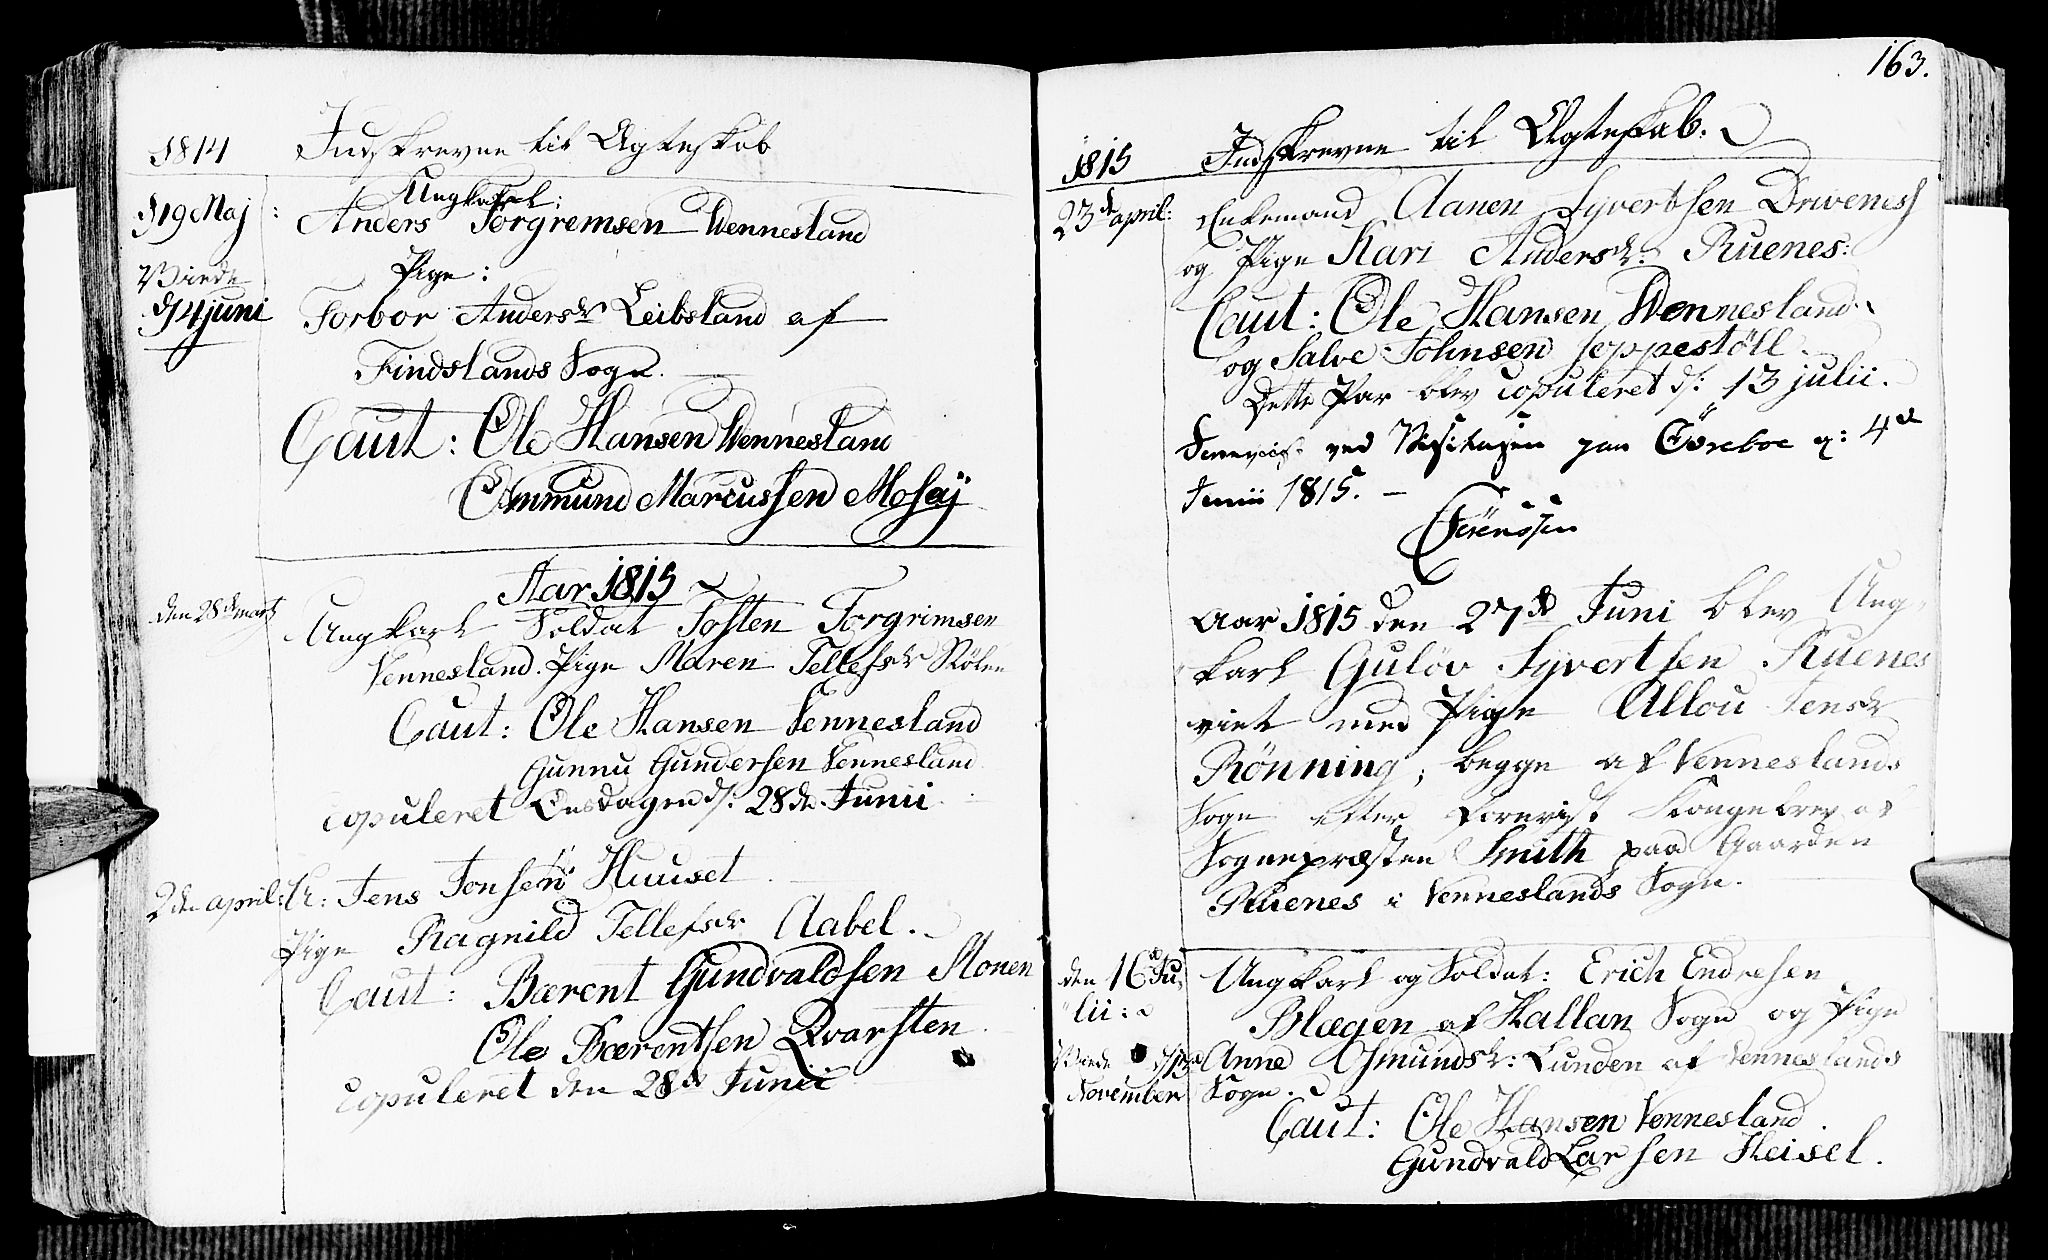 1814 Indskrevne til Ægteskab
d 19 Maj : Ungkarl:
Anders Torgremsen Wennesland
Viede Pige:
d 14 juni Torbor Andersdr Leibsland af
Findslands Sogn.
Caut: Ole Hansen Wennesland
Ommund Marcussen Mosøÿ
Aar 1815
den 28de marts Ungkarl Soldat Tosten Torgrimsen
Vennesland. Pige Maren Tellefsdr
Caut: Ole Hansen Vennesland
Gunnu Gundersen Vennesland
copuleret Onsdagen d: 28de Junii.
2den april: Jens Jonsen Huuset
Pige Ragnild Tellefsdr Aabel.
Caut: Bærent Gundvaldsen Monen
Ole Bærentsen Qvarsten
copuleret den 28de Junii
163.
1815 Indskrevne til Ægteskab.
23de april: Enkemand Aanen Syvertsen Drivenes
og Pige Kari Andersdr: Ruenes:
Caut: Ole Hansen Wennesland
og Salve Johnsen Joppestöll
Dette Par blev copuleret d: 13 julii.
ved Visitasen paa Öoreboe d: 4de
Junii 1815.
Sörenssen
Aar 1815 den 27de Juni blev Ung-
karl Gulöv Syvertsen Ruenes
viet med Pige Allou Jensdr
Rönning, begge af Venneslands
Sogn efter Forevist Kongebrev af
Sognepræsten Smith paa Gaarden
Ruenes i Venneslands Sogn.
den 16de Ju- Ungkarl og Soldat: Erich Endresen
lii: Blægen af Hallan Sogn og Pige
Viede Anne Osmundsdr: Lunden af Venneslands
November Sogn.
Caut: Ole Hansen Vennesland.
Gundvald Larsen Heisel.